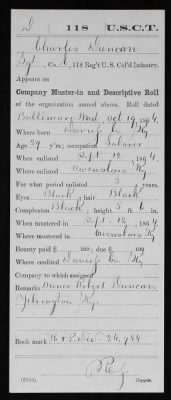 D 118 U.S.C.T.
Charles Duncan
Co. 118 Reg't U. S. Col'd Infantry.
Appears on
Company Muster-in and Descriptive Roll
of the organization named above. Roll dated
Baltimore Md. Oct 19, 1864.
Where born Daviess Co. Ky
Age 29 y'rs; occupation Laborer
When enlisted Sept. 12, 1864.
Where enlisted Owensboro Ky
For what period enlisted 3 years.
Eyes Black; hair Black
Complexion Black; height 5 ft. 6 in.
When mustered in Sept. 12, 1864.
Where mustered in Owensboro Ky
Bounty paid $ 100; due $ 100
Where credited Daviess Co. Ky.
Company to which assigned
Remarks: Owner Robert Duncan
Yelvington Ky.
Book mark:
Copyist.